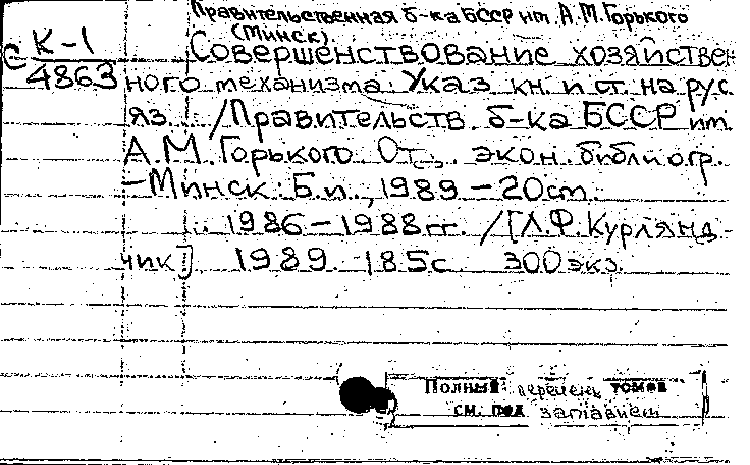 Правительственная б-ка БССР им. А.М.Горького
(Минск).
С К-1 Совершенствование хозяйствен
4863 ного механизма: Указ. кн. и ст. на рус.
яз. /Правительств. б-ка БССР им.
А.М.Горького. Отд. экон. библиогр.
–Минск: Б.и., 1989 – 20см.
1986–1988гг. /[Л.Ф.Курлянд-
чик] 1989. 185с. 300экз.
Полный перечень томов
см. под заглавием